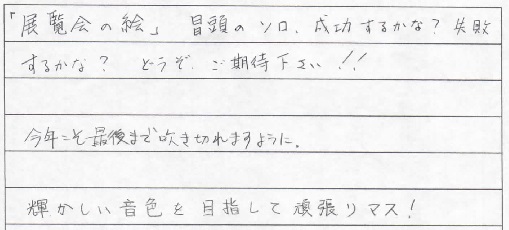 「展覧会の絵」 冒頭のソロ、成功するかな? 失敗
するかな? どうぞ、ご期待下さい!!
今年こそ最後まで吹き切れますように。
輝かしい音色を目指して頑張りマス!